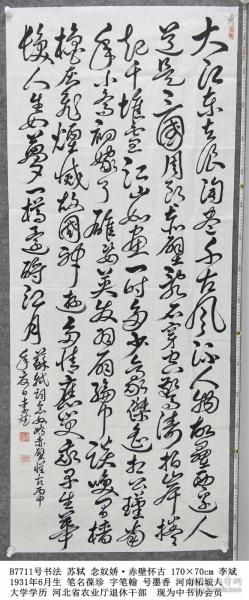 大江东去浪淘尽千古风流人物故垒西边人
道是三國周郎赤壁乱石穿空惊涛拍岸捲
起千堆雪江山如画一时多少豪傑遥想公瑾當
年小喬初嫁了雄姿英发羽扇纶巾談笑間
樯櫓灰飛煙滅故國神遊多情應笑我早生華
发人生如夢一樽還酹江月
蘇軾詞念奴嬌赤壁懷古丙申
年夏日李斌
B7711号书法 苏轼 念奴娇·赤壁怀古 170×70cm 李斌
1931年6月生 笔名葆珍 字笔翰 号墨香 河南柘城人
大学学历 河北省农业厅退休干部 现为中书协会员